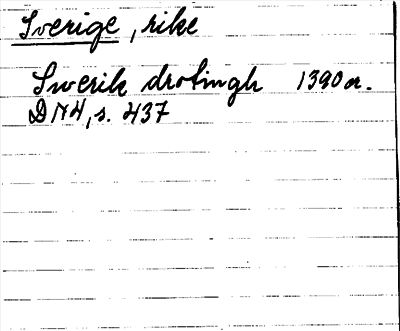 Sverige, rike
Swerik drotingh 1390 a.
DN4, s. 437